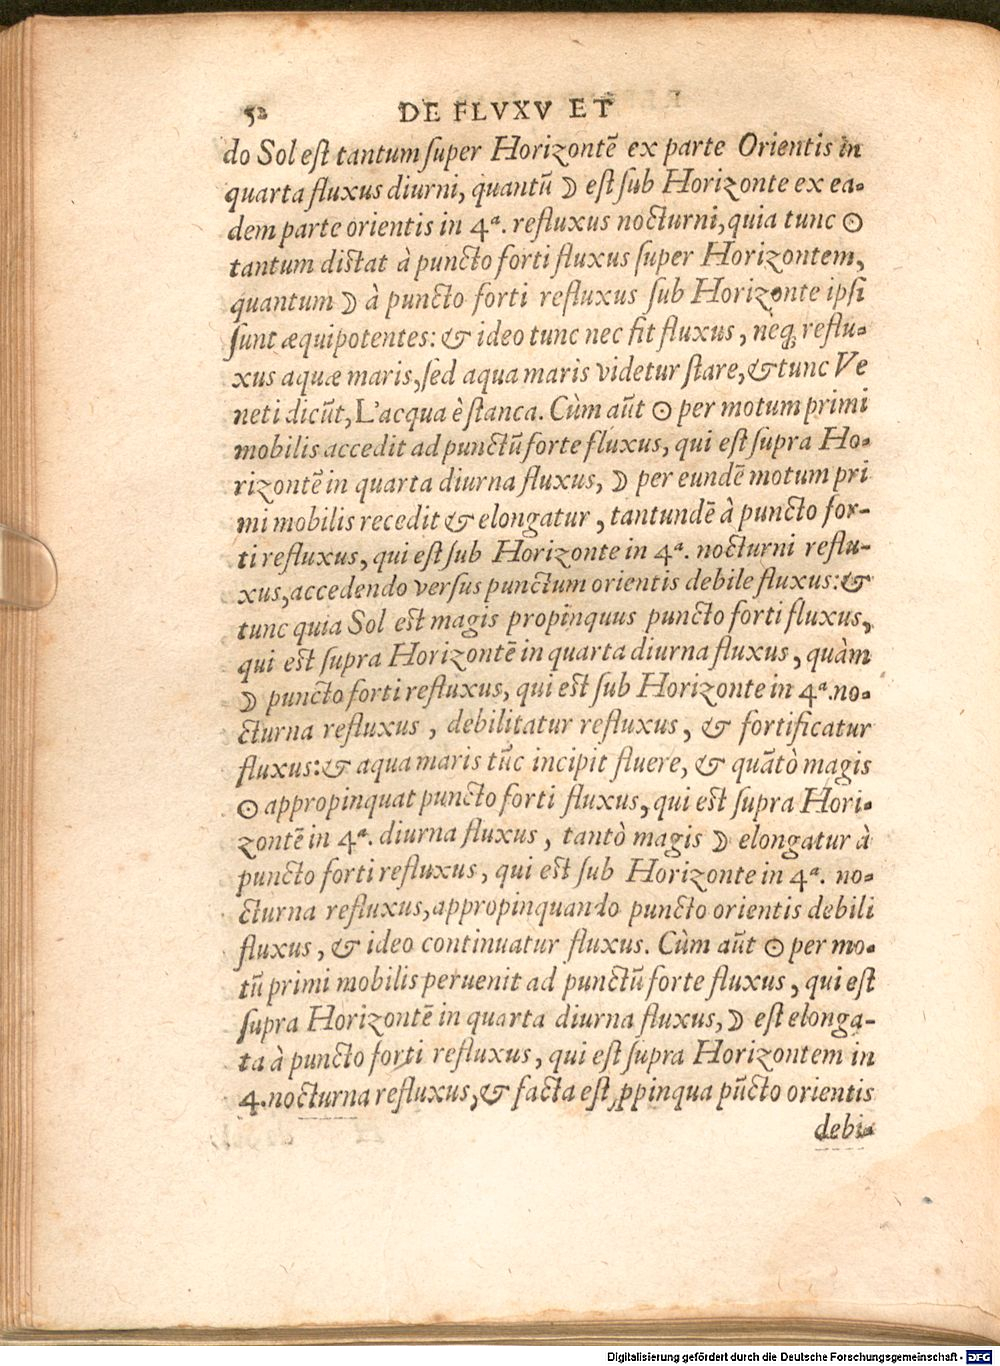 52 DE FLVXV ET
do Sol est tantum super Horizontẽ ex parte Orientis in
quarta fluxus diurni, quantũ ☽ est sub Horizonte ex ea-
dem parte orientis in 4ª. refluxus nocturni, quia tunc ☉
tantum distat à puncto forti fluxus super Horizontem,
quantum ☽ à puncto forti refluxus sub Horizonte ipsi
sunt æquipotentes: & ideo tunc nec fit fluxus, neq; reflu-
xus aquæ maris, sed aqua maris videtur stare, & tunc Ve
neti dicũt, L'acqua è stanca. Cùm aũt ☉ per motum primi
mobilis accedit ad punctũ forte fluxus, qui est supra Ho-
rizontẽ in quarta diurna fluxus, ☽ per eundẽ motum pri
mi mobilis recedit & elongatur, tantundẽ à puncto for-
ti refluxus, qui est sub Horizonte in 4ª. nocturni reflu-
xus, accedendo versus punctum orientis debile fluxus: &
tunc quia Sol est magis propinquus puncto forti fluxus,
qui est supra Horizontẽ in quarta diurna fluxus, quàm
☽ puncto forti refluxus, qui est sub Horizonte in 4ª. no-
cturna refluxus, debilitatur refluxus, & fortificatur
fluxus: & aqua maris tũc incipit fluere, & quãtò magis
☉ appropinquat puncto forti fluxus, qui est supra Hori-
zontẽ in 4ª. diurna fluxus, tantò magis ☽ elongatur à
puncto forti refluxus, qui est sub Horizonte in 4ª. no-
cturna refluxus, appropinquando puncto orientis debili
fluxus, & ideo continuatur fluxus. Cùm aũt ☉ per mo-
tũ primi mobilis peruenit ad punctũ forte fluxus, qui est
supra Horizontẽ in quarta diurna fluxus, ☽ est elonga-
ta à puncto forti refluxus, qui est supra Horizontem in
4. nocturna refluxus, & facta est ꝓpinqua pũcto orientis
debi-
Digitalisierung gefördert durch die Deutsche Forschungsgemeinschaft - DFG